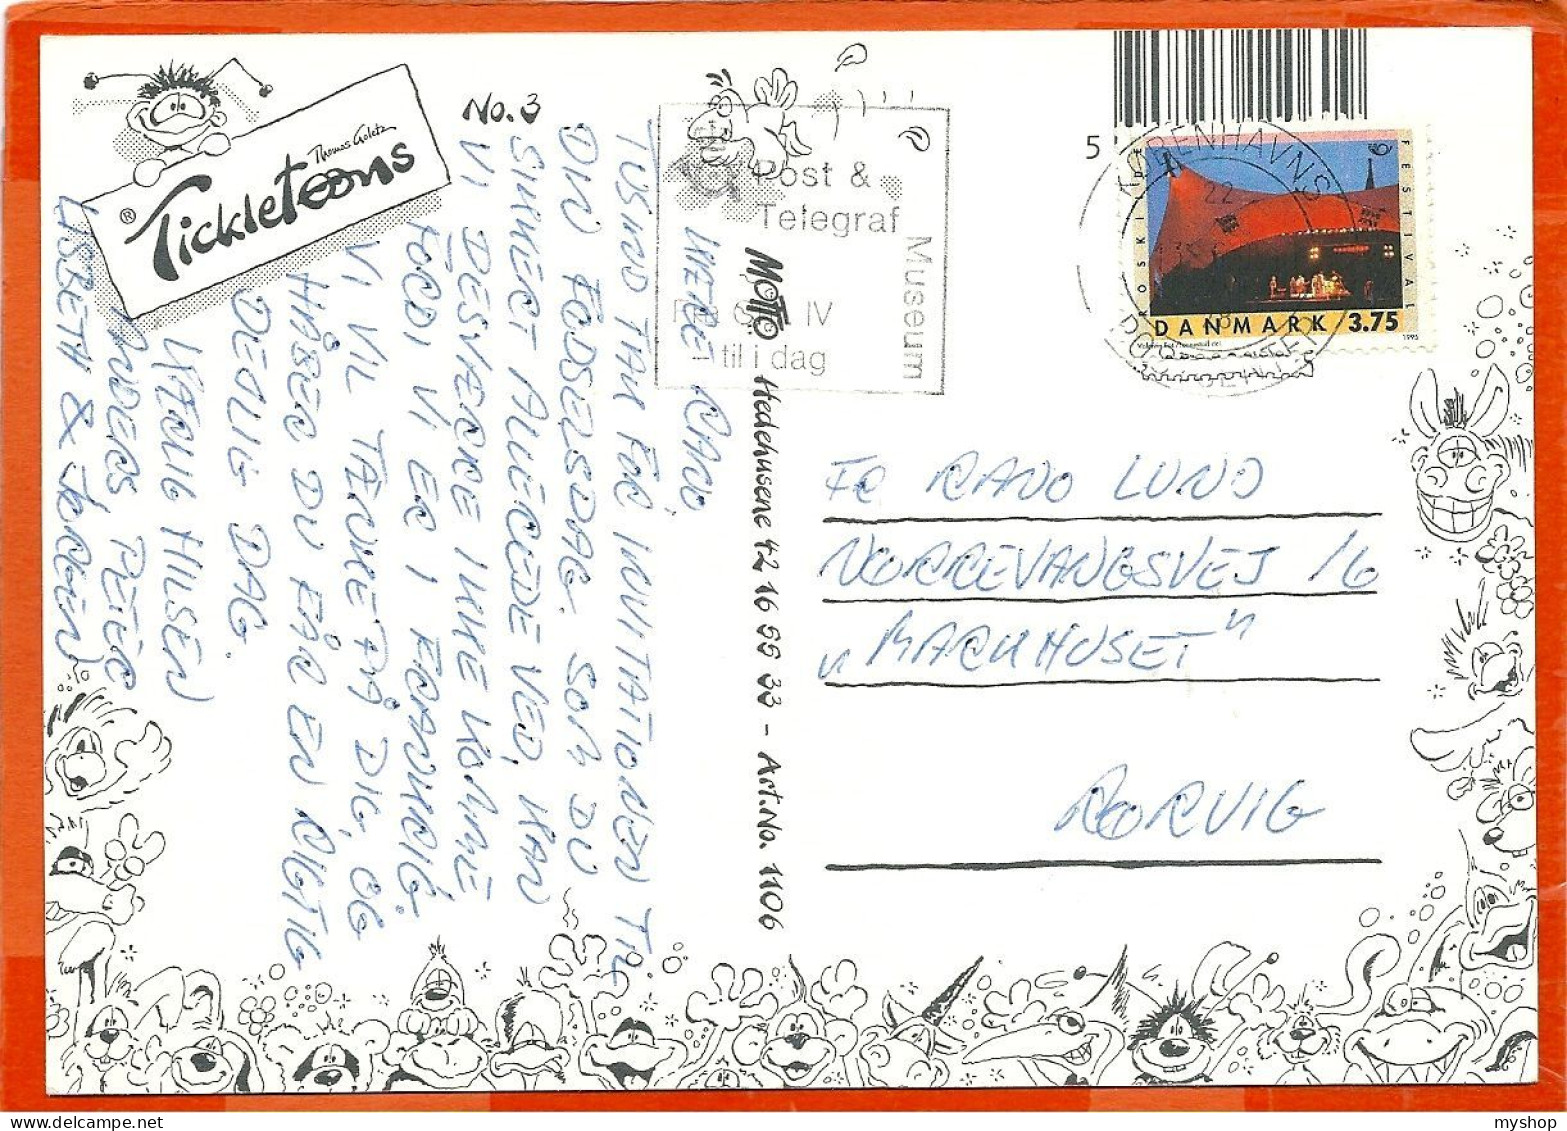 No. 3
Thomas Goletz
® Tickletoons
KÆRE RANO
TUSIND TAK FOR INVITATIONEN TIL
DIN FØDSELSDAG. SOM DU
SIKKERT ALLEREDE VED, KAN
VI DESVÆRRE IKKE KOMME
FORDI VI ER I FRANKRIG.
VI VIL TÆNKE PÅ DIG, OG
HÅBER DU FÅR EN RIGTIG
DEJLIG DAG.
KÆRLIG HILSEN
ANDERS, PETER
LISBETH & JØRGEN
MOTTO Hedehusene 42 16 55 33 - Art.No. 1106
Post &
Telegraf
Museum
IV
- til i dag
5
KØBENHAVNS
22
POSTCENTER
ROSKILDE
FESTIVAL
DANMARK 3.75
1995
FR RANO LUND
NØRREVANGSVEJ 16
"MARKHUSET"
RØRVIG
myshop